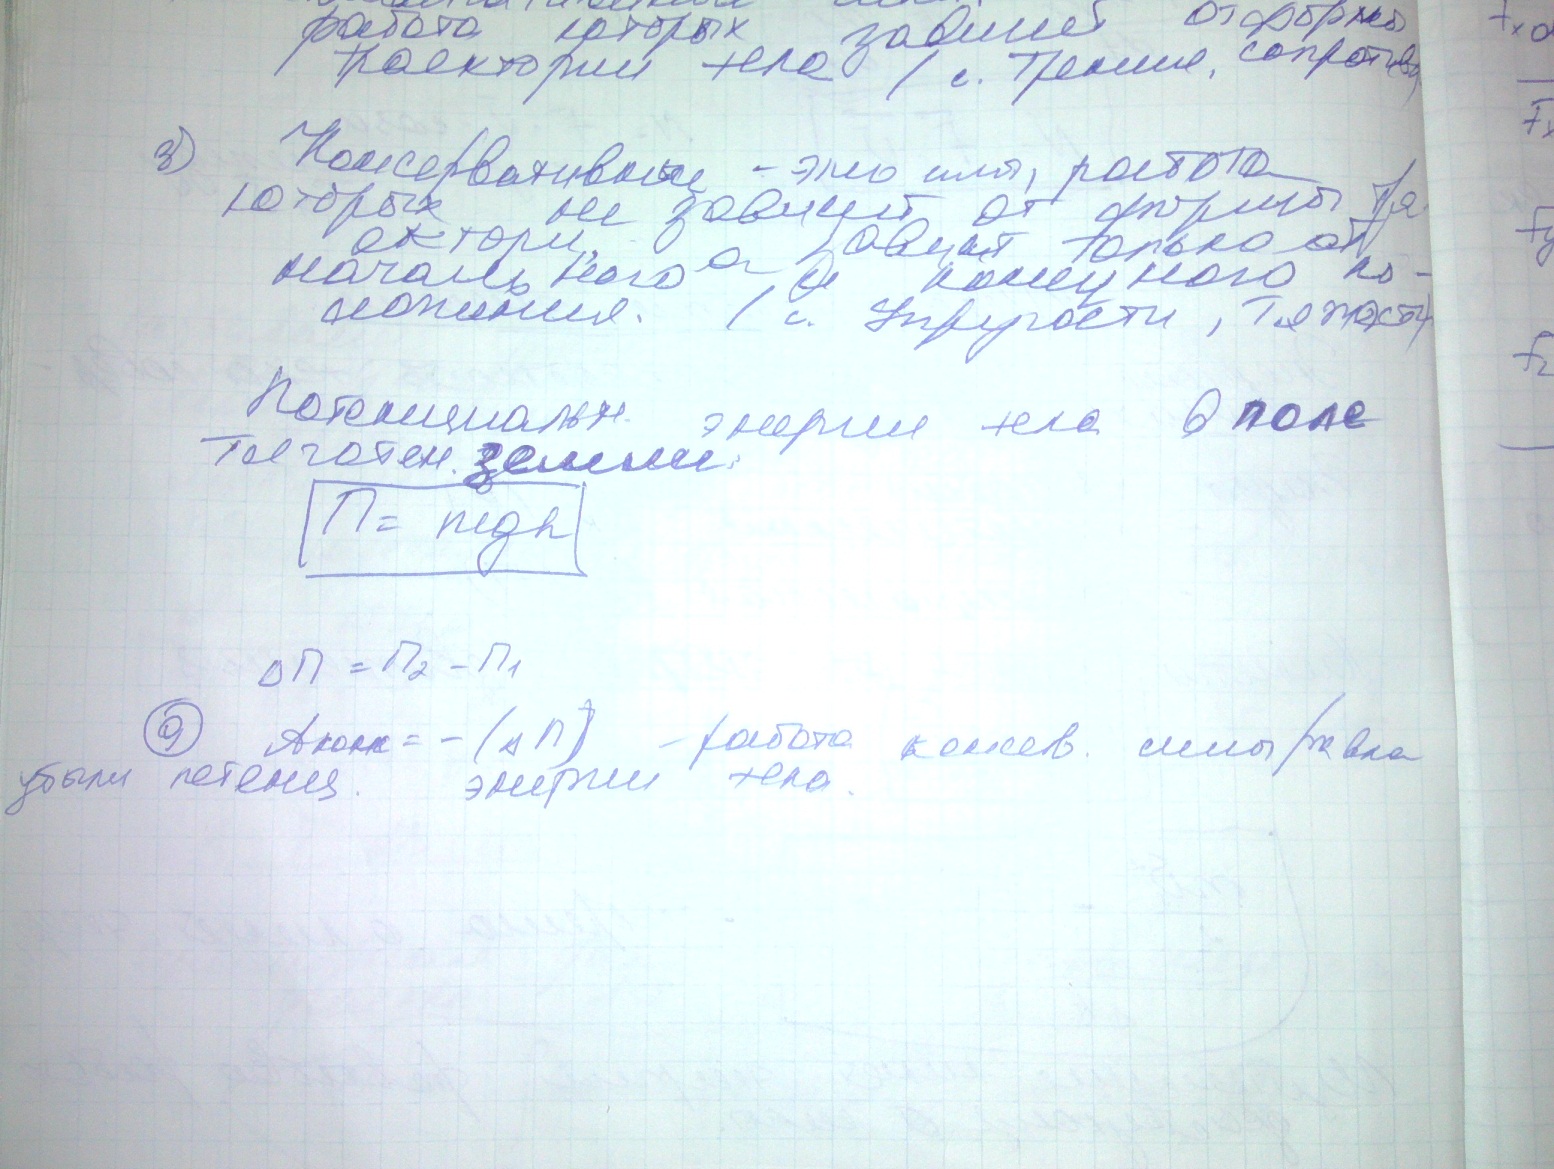 работа которых зависит от формы
траектории тела / с. Трения, сопротив
з) Консервативные - это силы, работа
которых не зависит от формы тра
ектори, а зависит только от
начального и конечного по-
ложения. / с. Упругости, Тяжести
Потенциальн. энергии тела в поле
Тяготен. земли.
П = mgh
ΔП = П2 - П1
9 Аконс = -(ΔП) - работа консев. силы равна
убыли потенц. энергии тела.
Fx
Fy
Fz